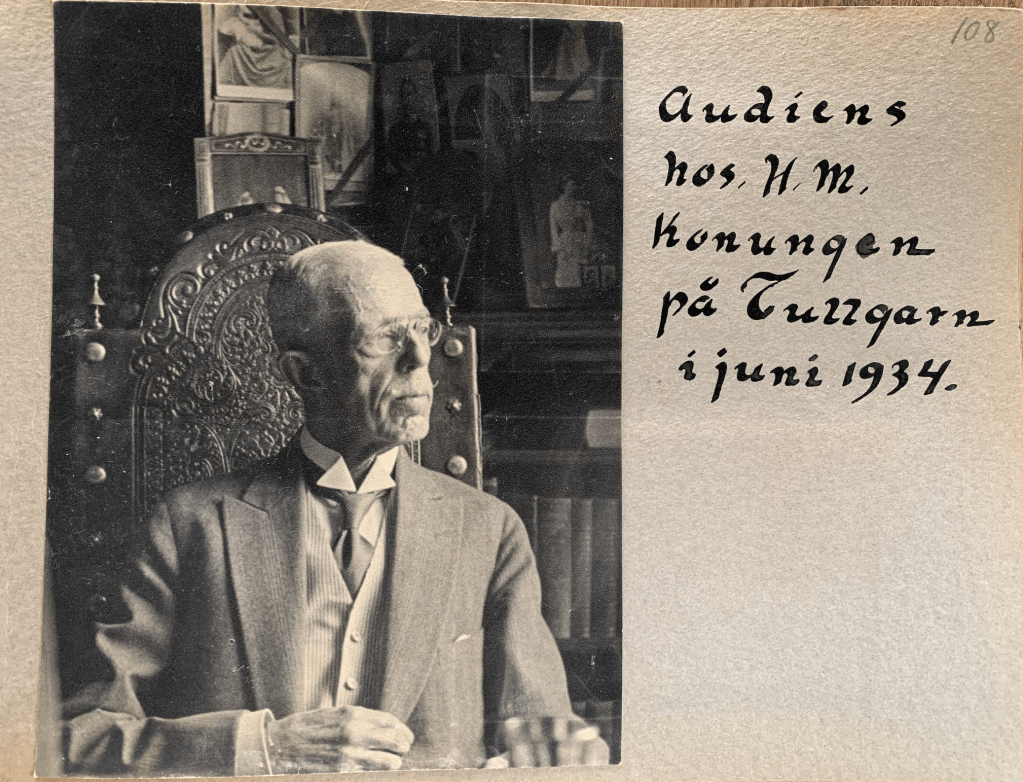 108
Audiens
hos. H. M.
Konungen
på Tullgarn
i juni 1934.